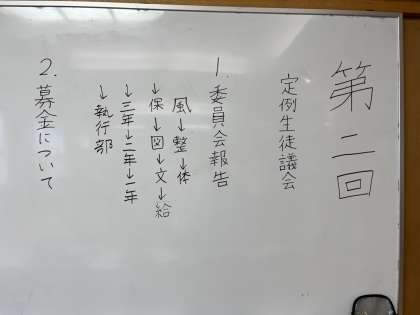 第二回
定例生徒議会
1. 委員会報告
風→整→体
→保→図→文→給
→三年→二年→一年
→執行部
2. 募金について